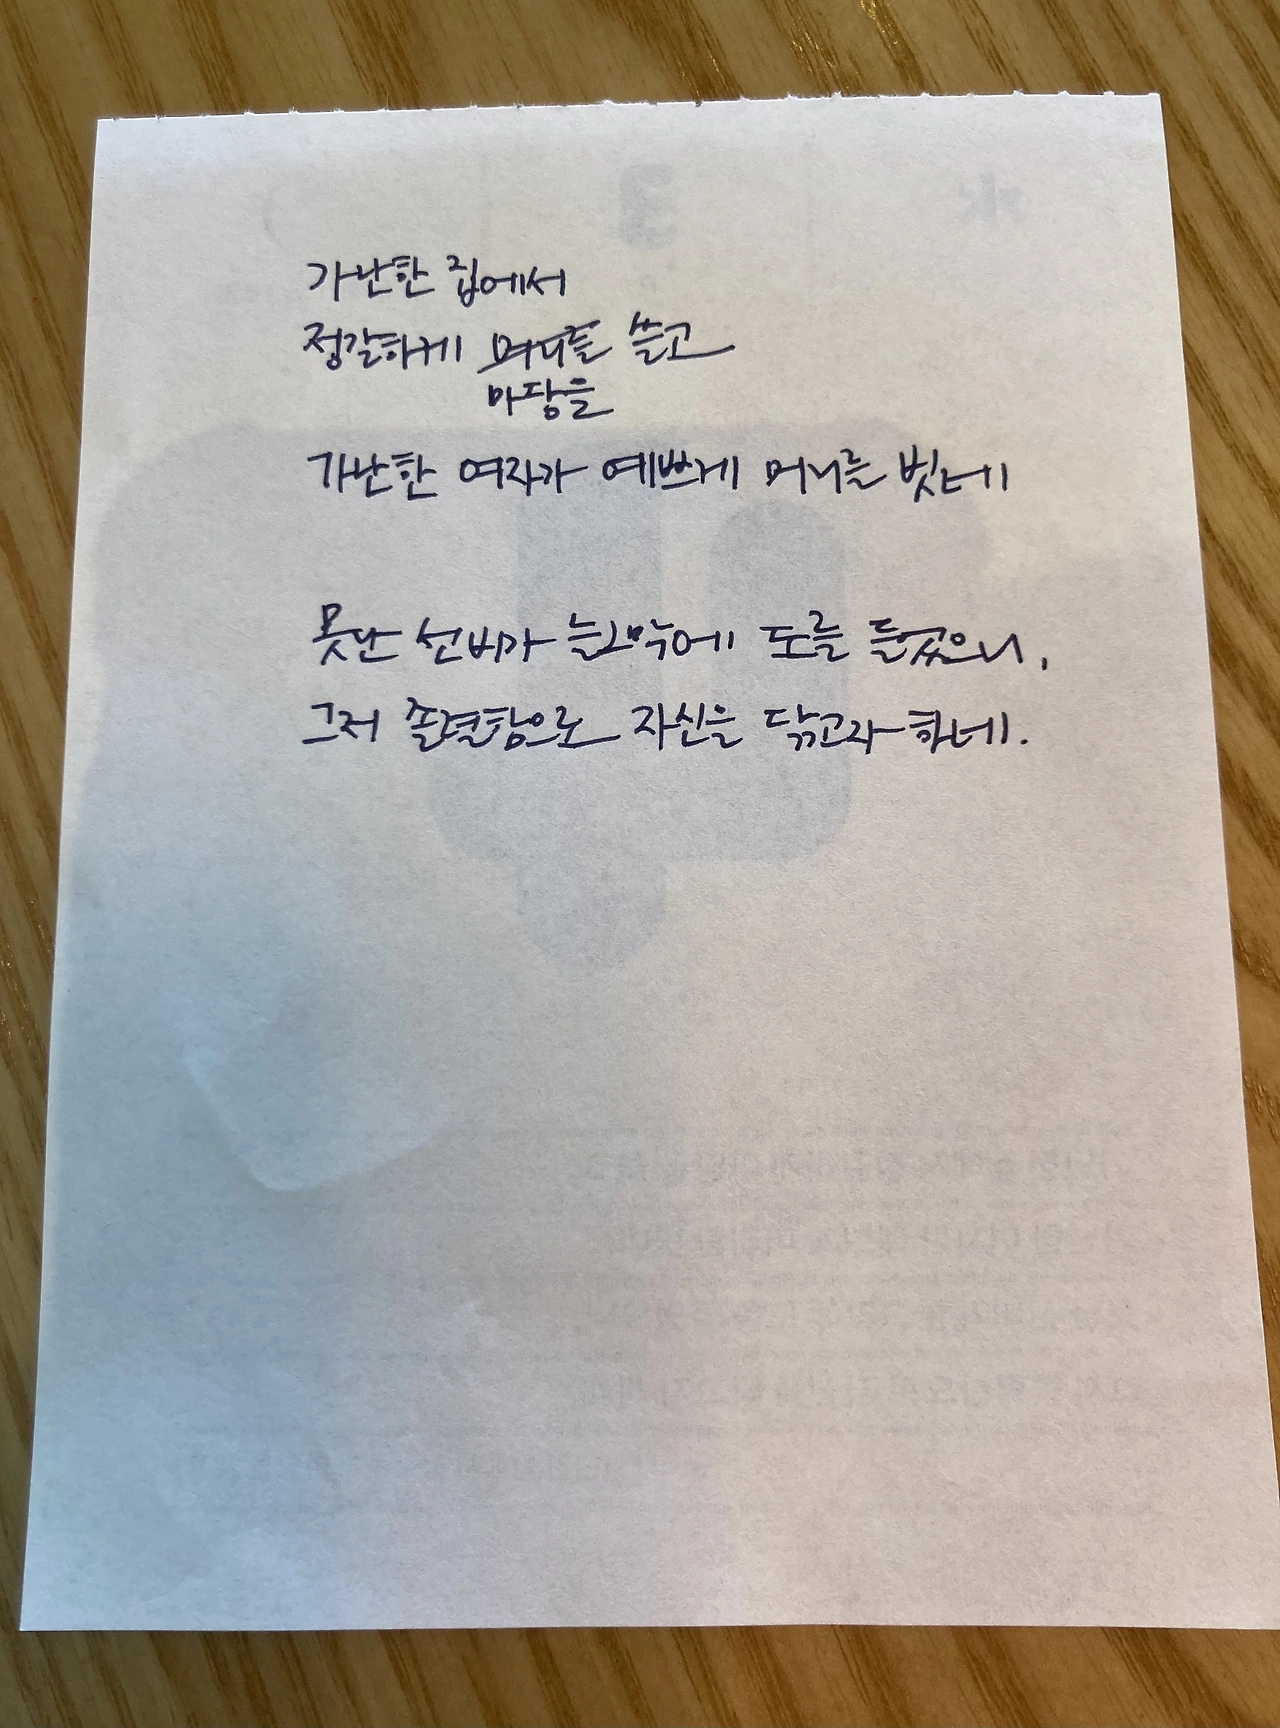 가난한 집에서
정갈하게 머리를 쓸고
마당을
가난한 여자가 예쁘게 머리를 빗네
못난 선비가 늘그막에 도를 들었으니,
그저 졸렬함으로 자신을 닦고자 하네.